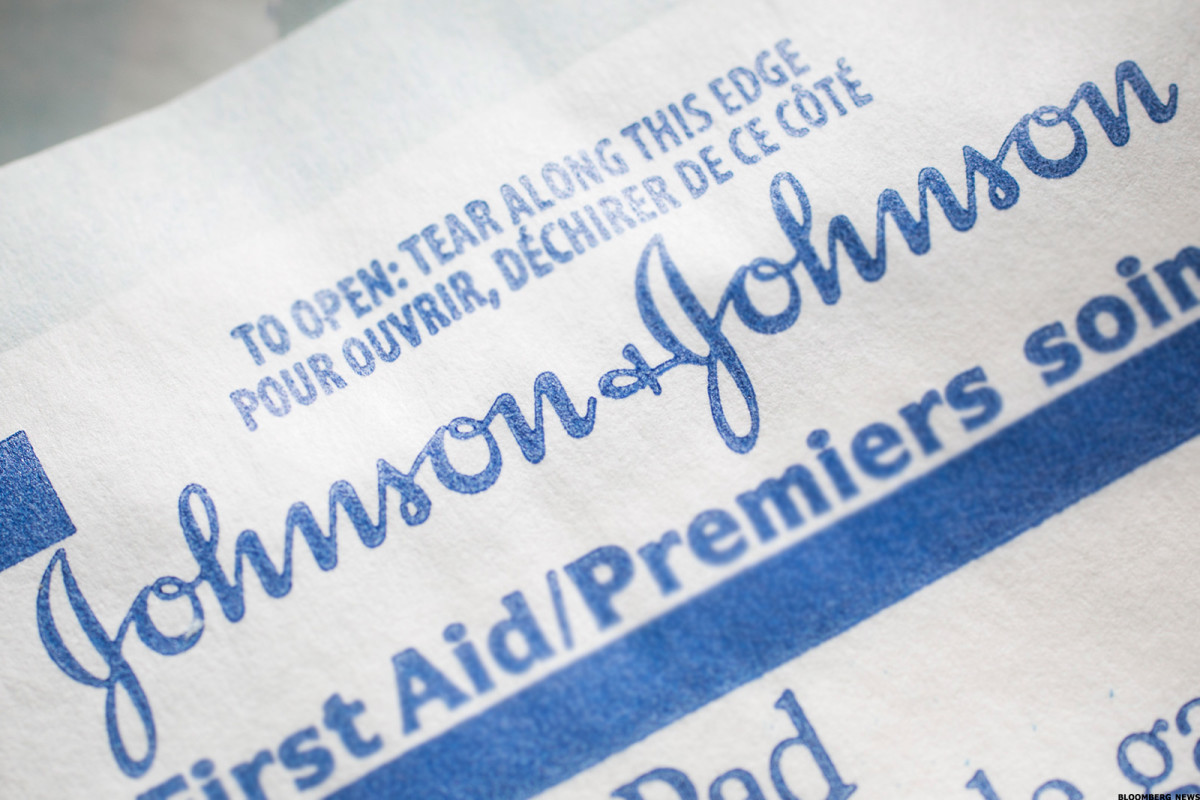 TO OPEN: TEAR ALONG THIS EDGE
POUR OUVRIR, DÉCHIRER DE CE CÔTÉ
Johnson & Johnson
First Aid/Premiers soin
Pad
BLOOMBERG NEWS